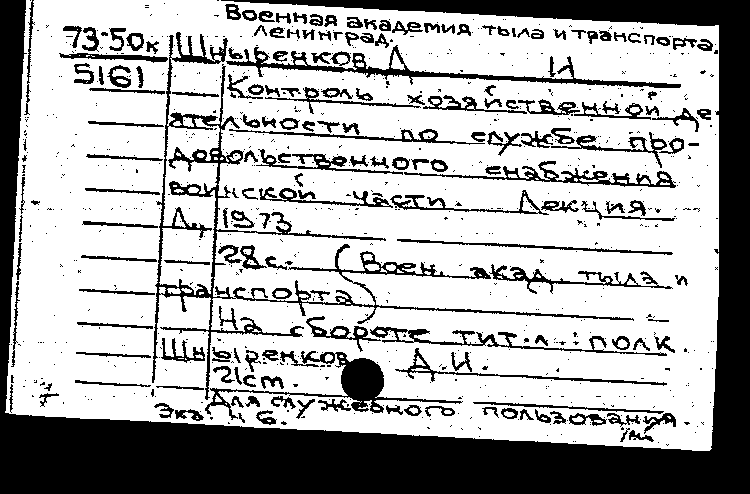 Военная академия тыла и транспорта.
Ленинград.
73-50к Шныренков, Д И
5161 Контроль хозяйственной де-
ятельности по службе про-
довольственного снабжения
воинской части. Лекция.
Л., 1973.
28с. (Воен. акад. тыла и
транспорта)
На обороте тит.л.: полк.
Шныренков Д.И.
21cm.
Для служебного пользования.
Экз. № 6.